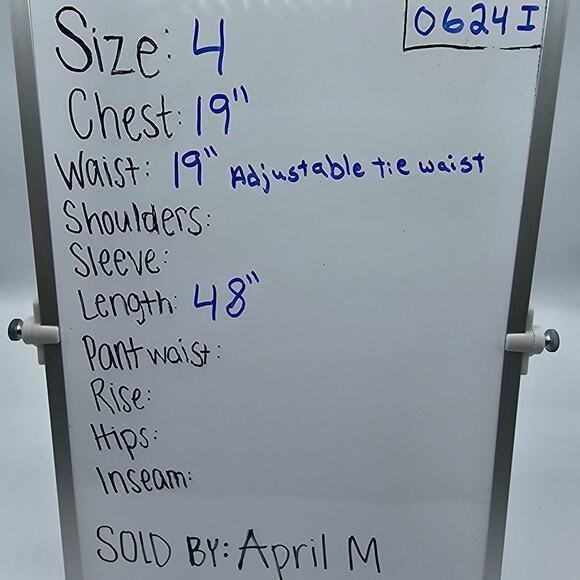 0624I
Size: 4
Chest: 19"
Waist: 19" Adjustable tie waist
Shoulders:
Sleeve:
Length: 48"
Pant waist:
Rise:
Hips:
Inseam:
SOLD BY: April M